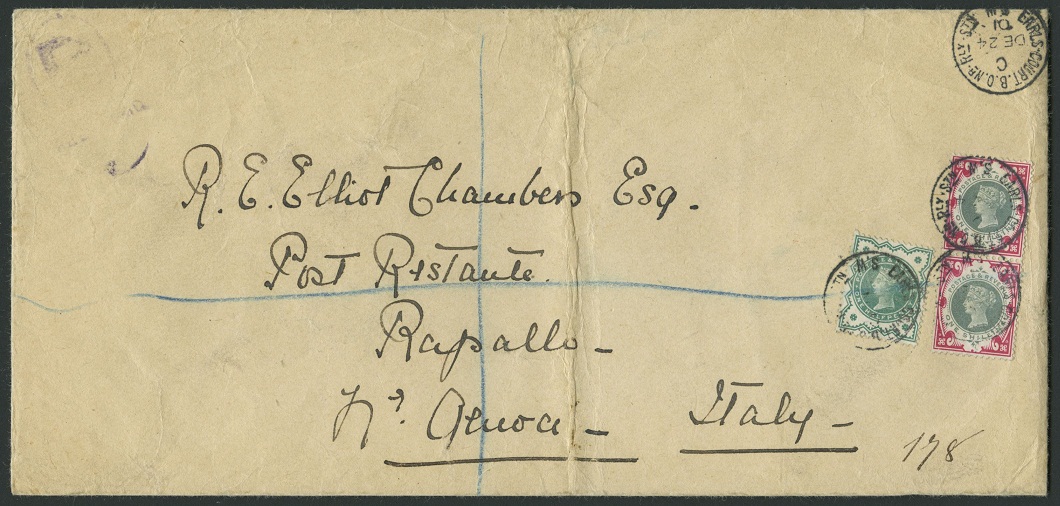 R. E. Elliot Chambers Esq.
Post Ristante.
Rapallo -
Nr. Genoa - Italy -
178
EARLS-COURT. B.O. Nº RLY. STN S.W.
C
DE 24
01